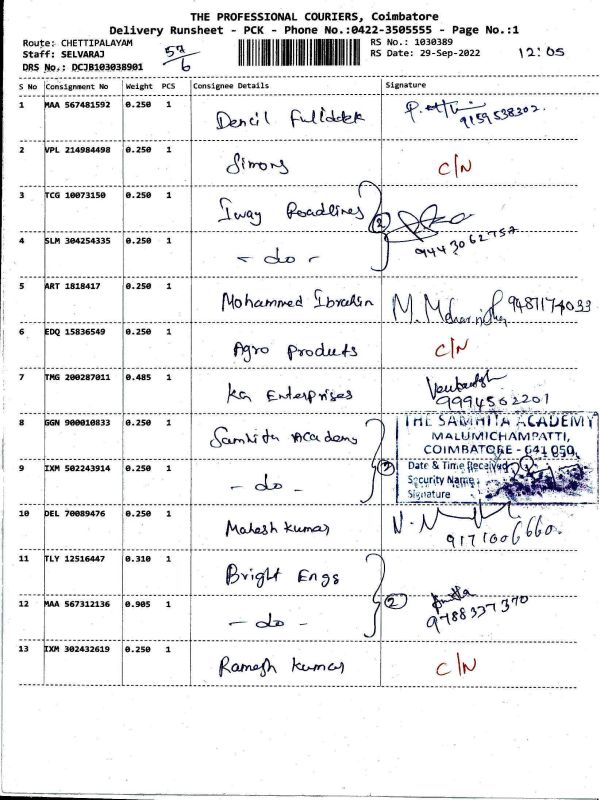 THE PROFESSIONAL COURIERS, Coimbatore
Delivery Runsheet - PCK - Phone No.:0422-3505555 - Page No.:1
Route: CHETTIPALAYAM
Staff: SELVARAJ
DRS No.: DCJB103038901
57/6
RS No.: 1030389
RS Date: 29-Sep-2022
12:05
S No Consignment No Weight PCS Consignee Details Signature
1 MAA 567481592 0.250 1 9159538302
2 VPL 214984498 0.250 1 Simons C/N
3 TCG 10073150 0.250 1 Iway Roadlines 2
4 SLM 304254335 0.250 1 - do - 9443062757
5 ART 1818417 0.250 1 Mohammed Ibrahim 9487174033
6 EDQ 15836549 0.250 1 Agro Products C/N
7 TMG 200287011 0.485 1 KG Enterprises 9994562201
8 GGN 900010833 0.250 1 Samhita Academy
9 IXM 502243914 0.250 1 - do -
THE SAMHITA ACADEMY
MALUMICHAMPATTI,
COIMBATORE - 641 050.
Date & Time Received
Security Name
Signature
10 DEL 70089476 0.250 1 Mahesh Kumar 9171006660.
11 TLY 12516447 0.310 1 Bright Engs
12 MAA 567312136 0.905 1 - do - 2 9788337370
13 IXM 302432619 0.250 1 Ramesh Kumar C/N